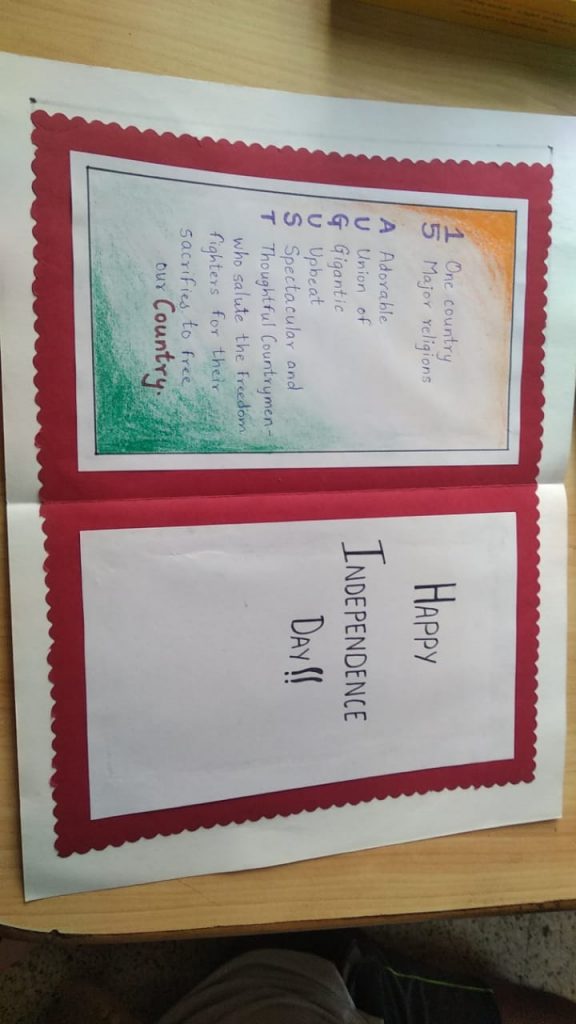 1 One country
5 Major religions
A Adorable
U Union of
G Gigantic
U Upbeat
S Spectacular and
T Thoughtful Countrymen-
who salute the freedom
fighters for their
sacrifies to free
our Country.
HAPPY
INDEPENDENCE
DAY!!